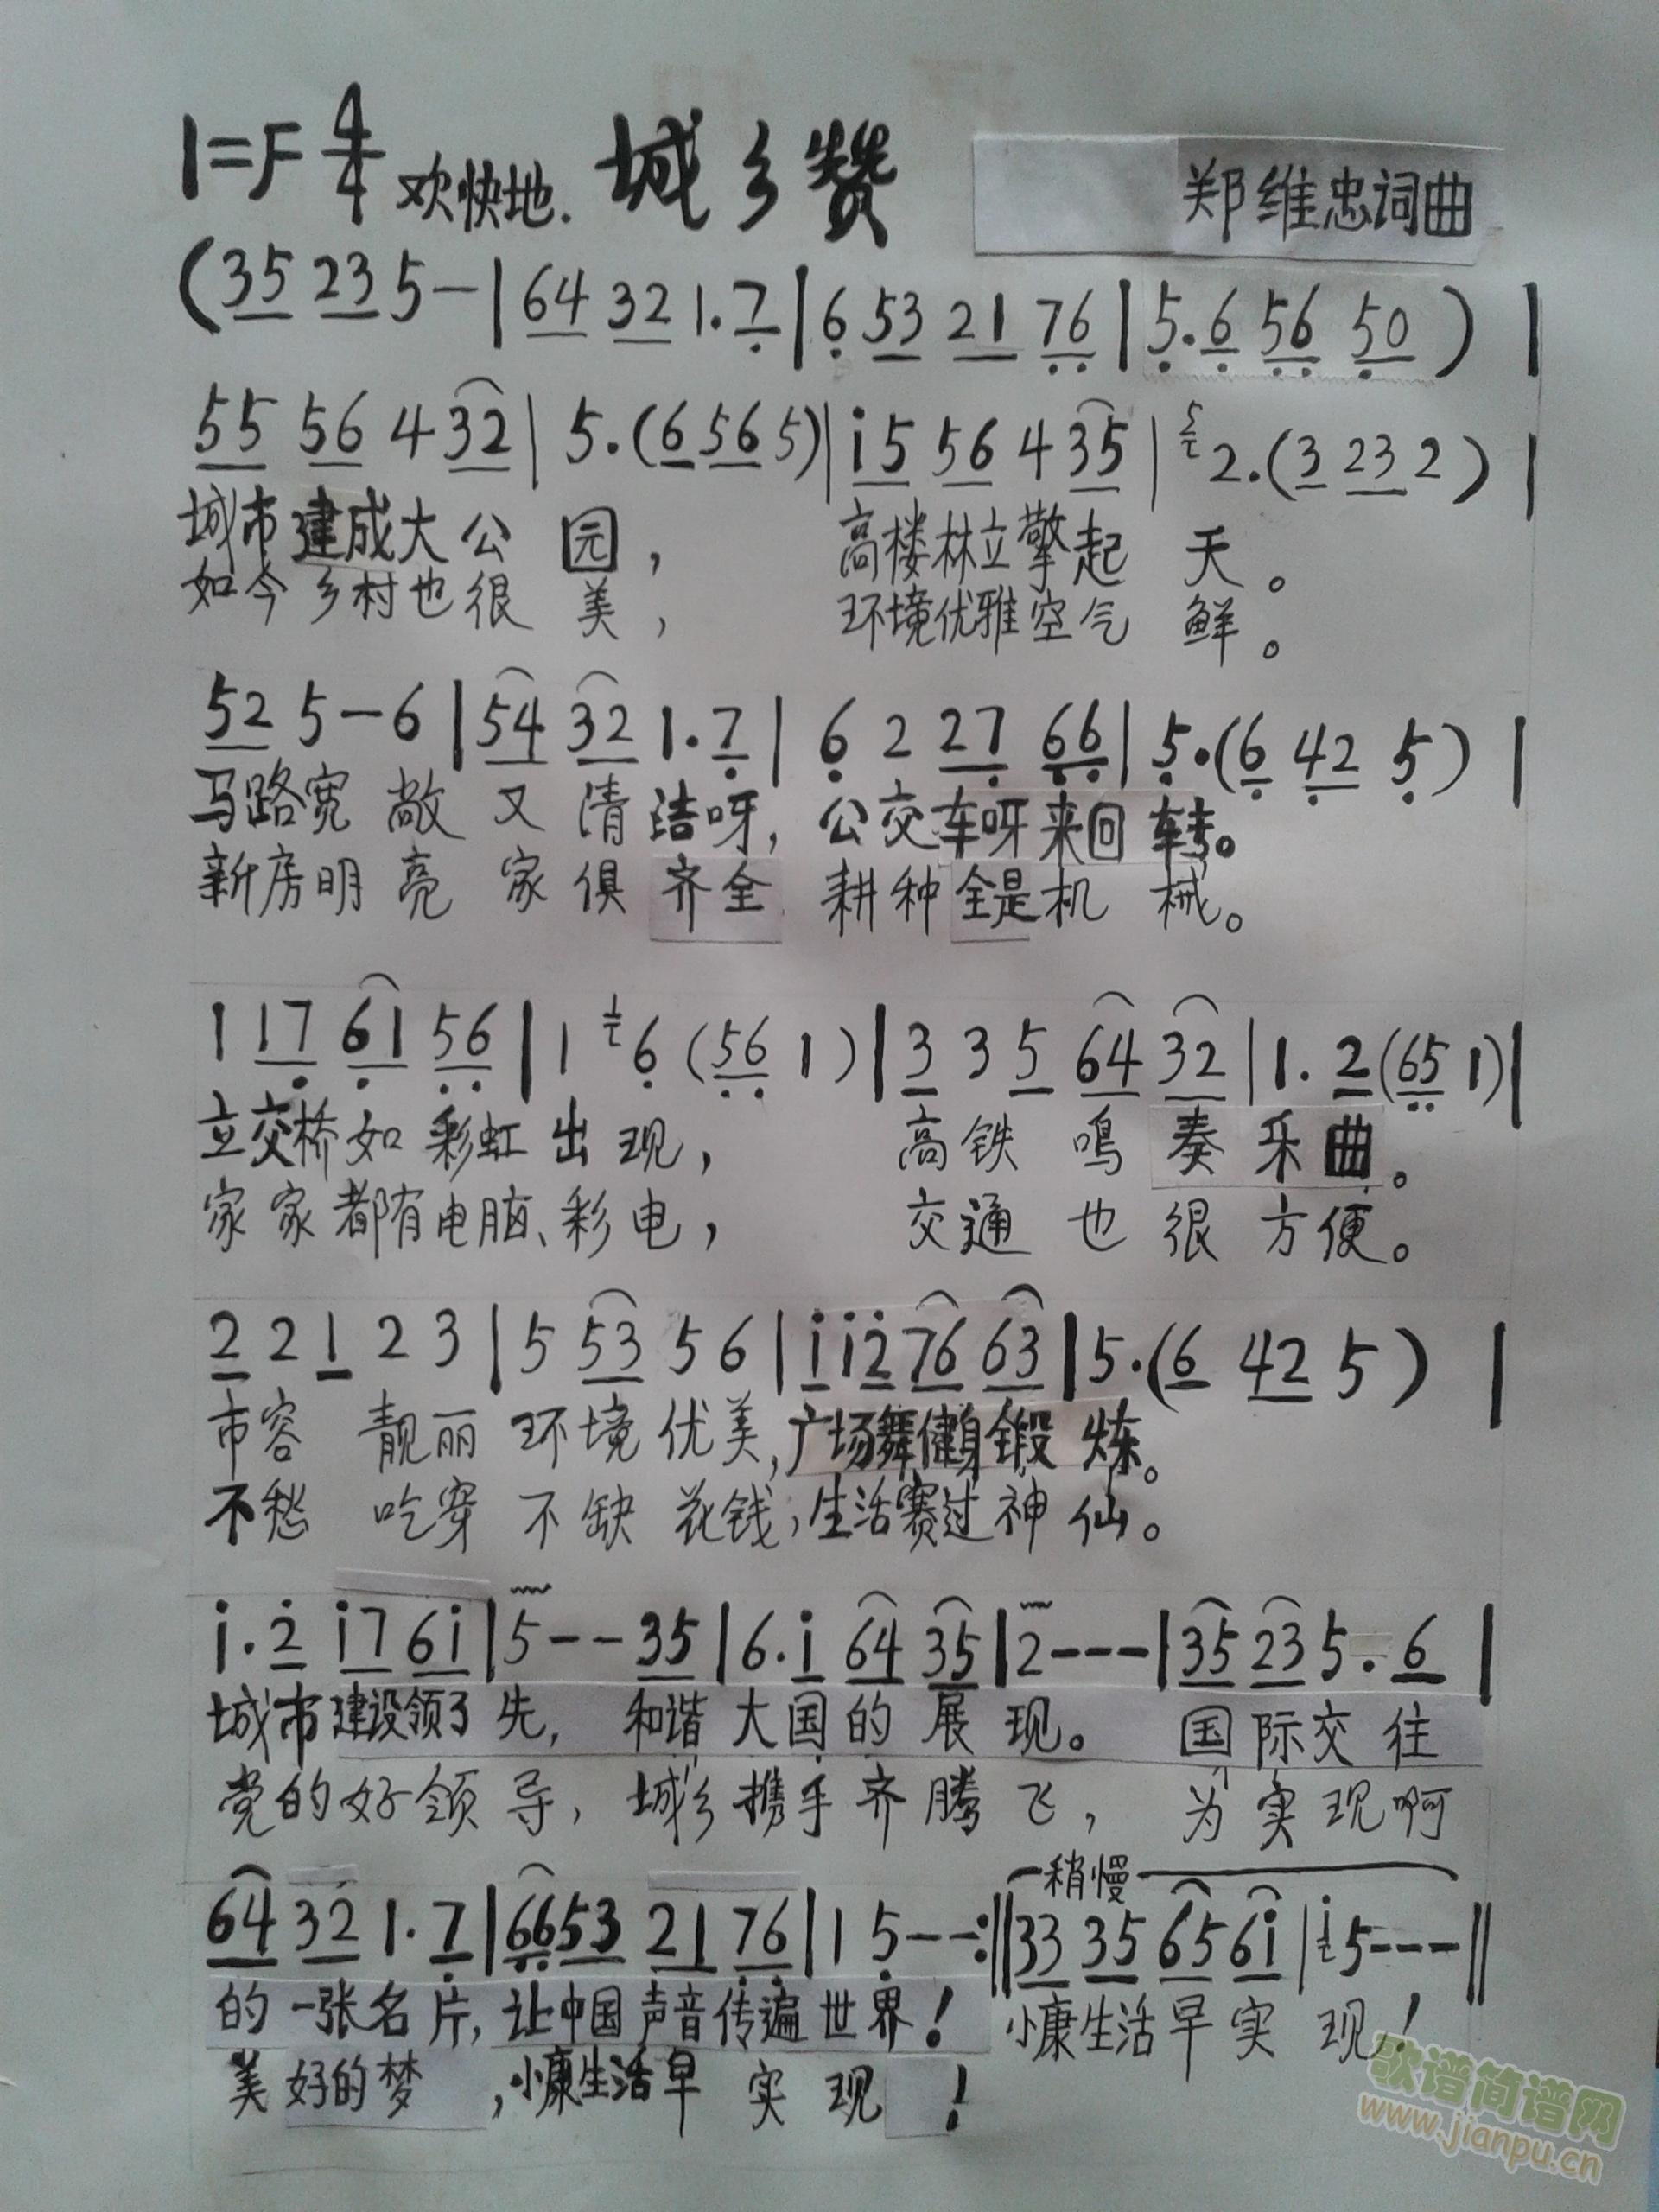 1=F 4/4 欢快地. 城乡赞 郑维忠词曲
(35 23 5-|64 32 1.7|6 53 21 76|5.6 56 50)|
55 56 4 32|5.(6 56 5)|i5 56 4 35|2.(3 23 2)|
城市建成大公园, 高楼林立擎起天。
如今乡村也很美, 环境优雅空气鲜。
52 5-6|54 32 1.7|6 2 27 66|5.(6 42 5)|
马路宽敞又清洁呀, 公交车呀来回转。
新房明亮家俱齐全 耕种全是机械。
1 17 61 56|1 6(56 1)|3 3 5 64 32|1.2(65 1)|
立交桥如彩虹出现, 高铁鸣奏乐曲。
家家都有电脑、彩电, 交通也很方便。
2 2 1 2 3|5 53 5 6|i i2 76 63|5.(6 42 5)|
市容靓丽环境优美,广场舞健身锻炼。
不愁吃穿不缺花钱,生活赛过神仙。
i.2 i7 6i|5--35|6.i 64 35|2---|35 23 5.6|
城市建设领了先, 和谐大国的展现。 国际交往
党的好领导, 城乡携手齐腾飞, 为实现啊
稍慢
64 32 1.7|6653 21 76|1 5--:‖33 35 65 6i|i5---‖
的一张名片, 让中国声音传遍世界! 小康生活早实现!
美好的梦, 小康生活早实现!
歌谱简谱网
www.jianpu.cn